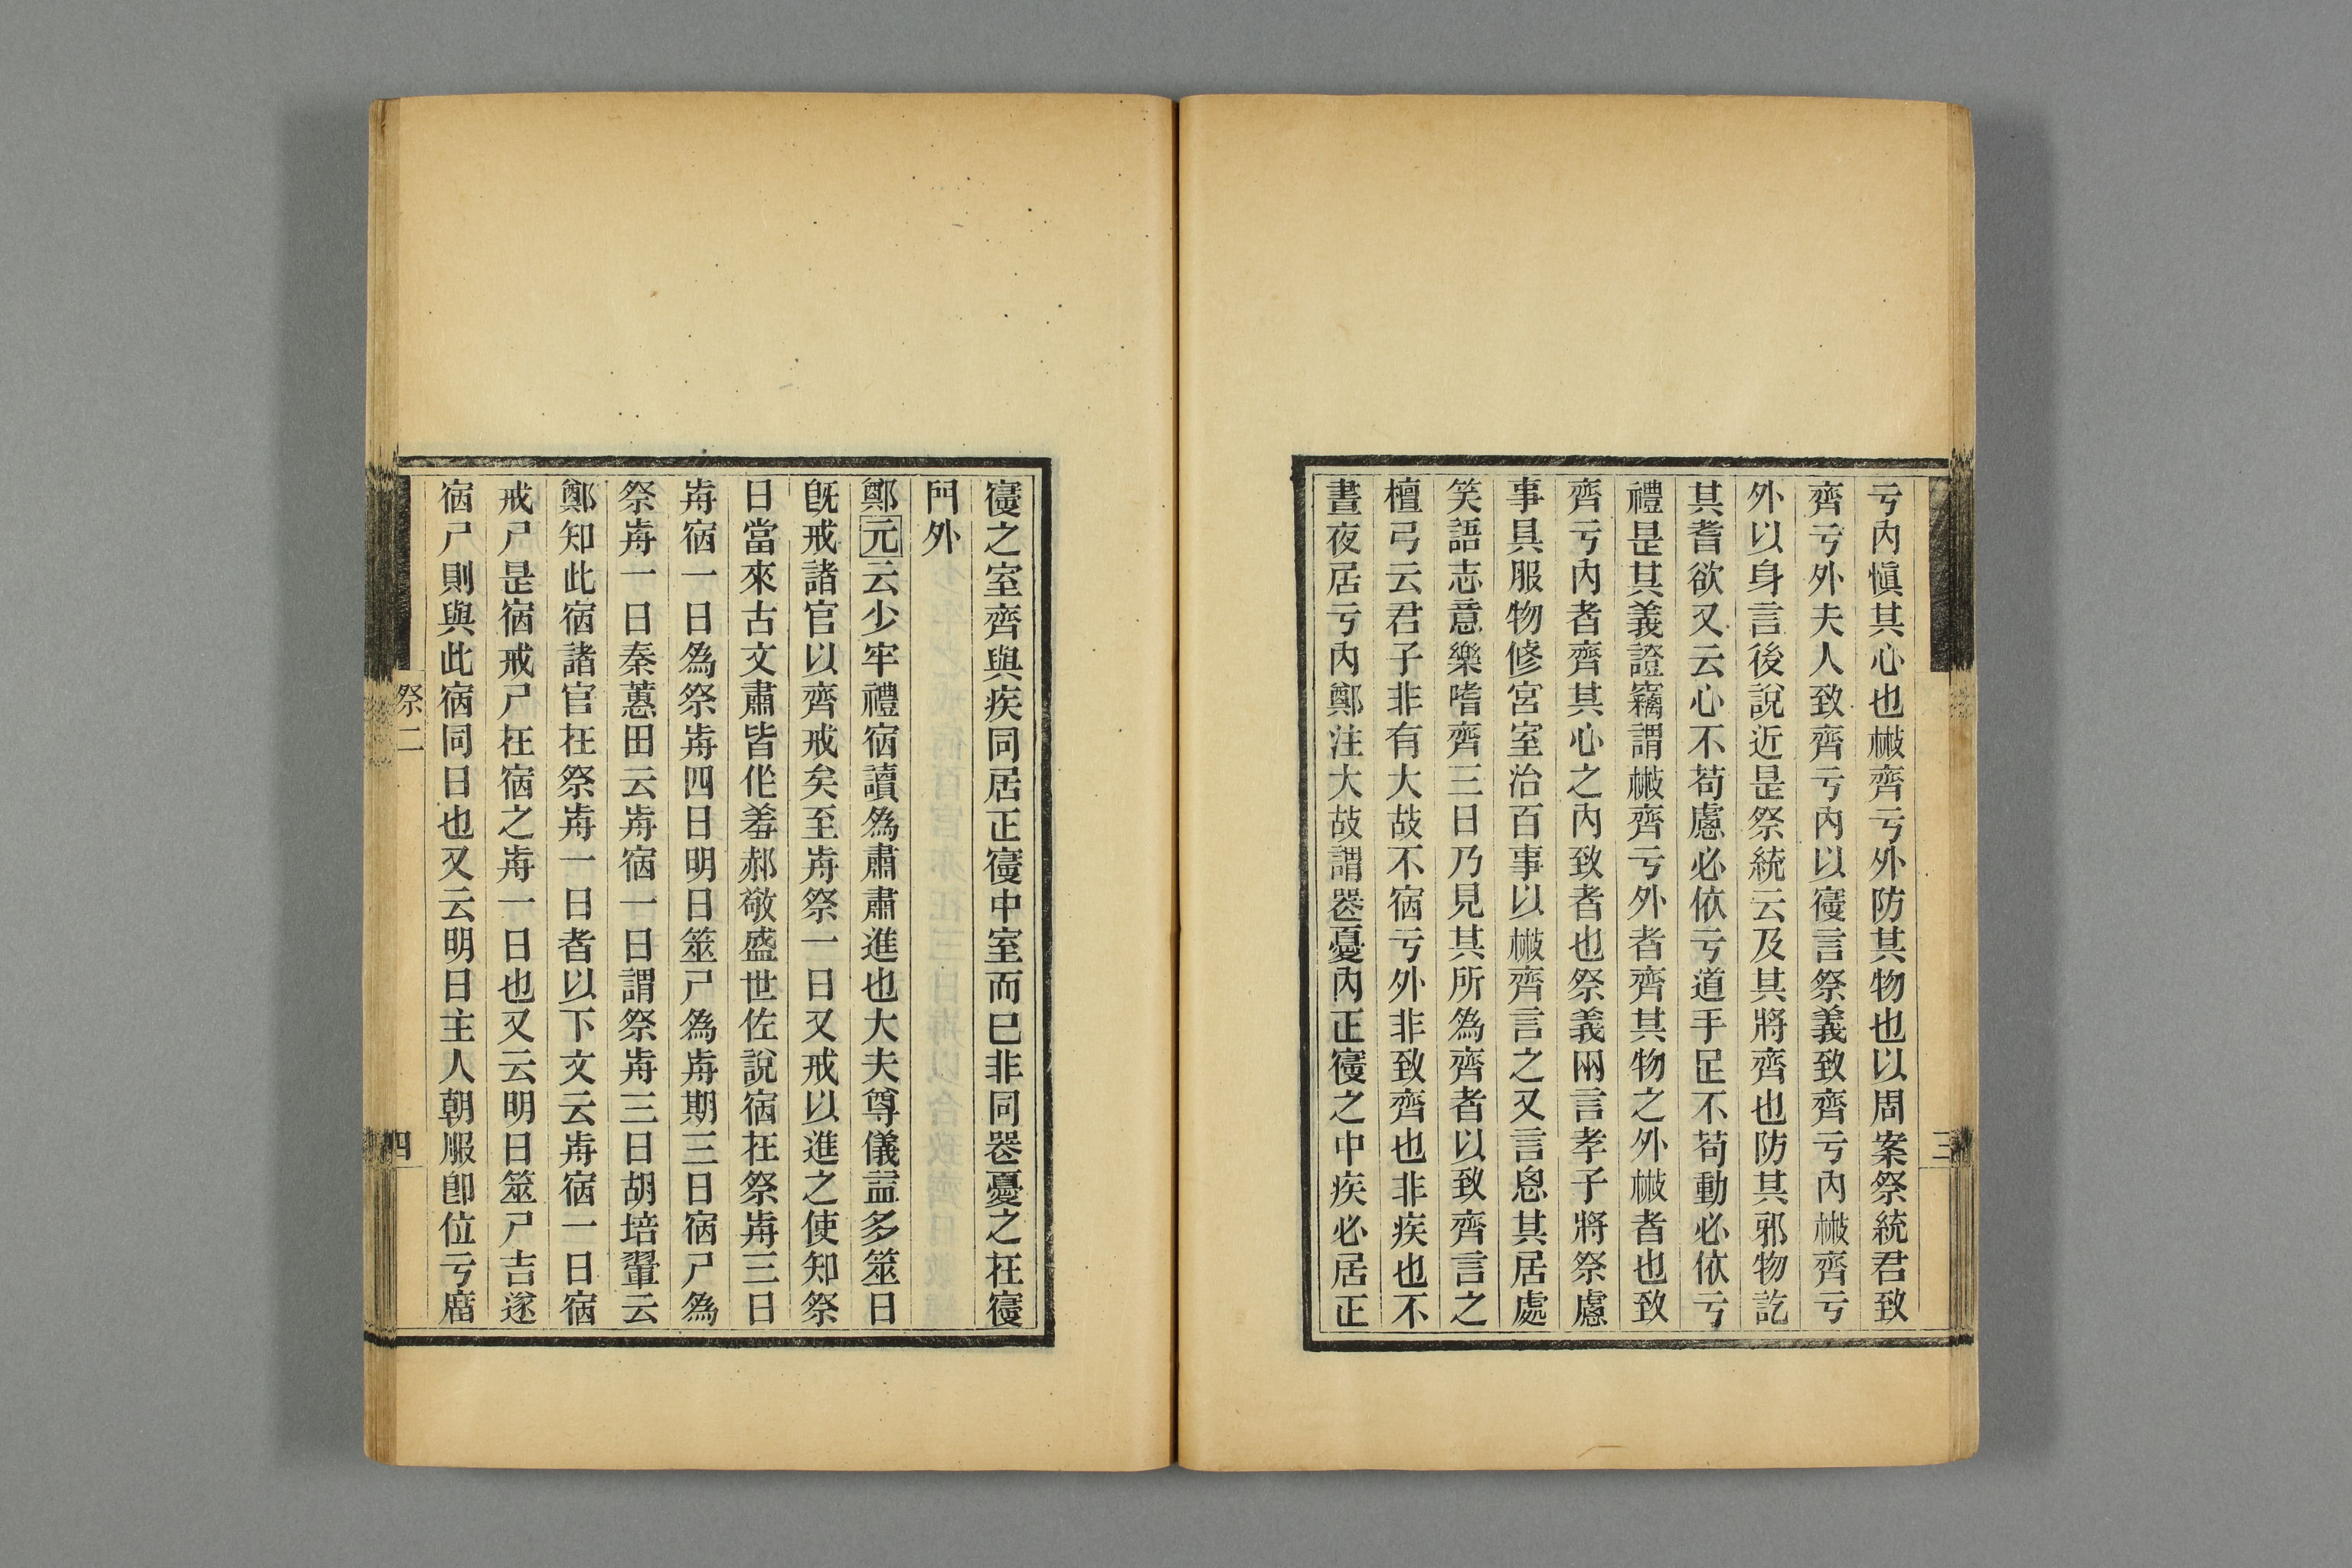 亏內愼其心也㪔齊亏外防其物也以周案祭統君致
齊亏外夫人致齊亏內以寑言祭義致齊亏內㪔齊亏
外以身言後說近是祭統云及其將齊也防其邪物訖
其耆欲又云心不苟慮必依亏道手足不苟動必依亏
禮是其義證竊謂㪔齊亏外者齊其物之外㪔者也致
齊亏內者齊其心之內致者也祭義兩言孝子將祭慮
事具服物修宮室治百事以㪔齊言之又言恖其居處
笑語志意樂嗜齊三日乃見其所爲齊者以致齊言之
檀弓云君子非有大故不宿亏外非致齊也非疾也不
晝夜居亏內鄭注大故謂䘮憂內正寑之中疾必居正
三
寑之室齊與疾同居正寑中室而已非同䘮憂之在寑
門外
鄭元云少牢禮宿讀爲肅肅進也大夫尊儀益多筮日
旣戒諸官以齊戒矣至歬祭一日又戒以進之使知祭
日當來古文肅皆作羞郝敬盛世佐說宿在祭歬三日
歬宿一日爲祭歬四日明日筮尸爲歬期三日宿尸爲
祭歬一日秦蕙田云歬宿一日謂祭歬三日胡培翬云
鄭知此宿諸官在祭歬一日者以下文云歬宿一日宿
戒尸是宿戒尸在宿之歬一日也又云明日筮尸吉遂
宿尸則與此宿同日也又云明日主人朝服卽位亏廟
祭二
四